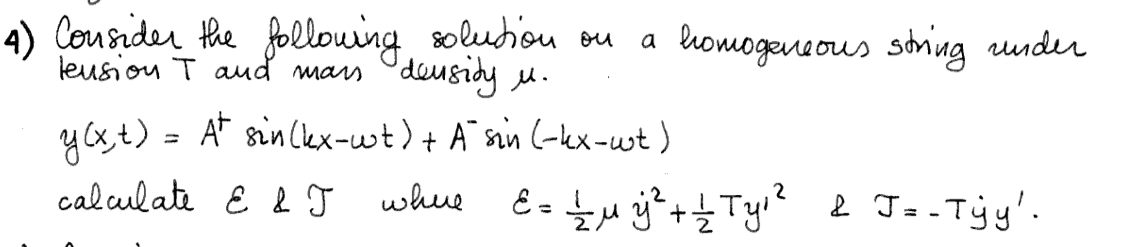 4) Consider the following solution on a homogeneous string under
tension T and mass density μ.
y(x,t) = A⁺ sin(kx-ωt) + A⁻ sin(-kx-ωt)
calculate ℰ & J where ℰ = 1/2 μ ẏ² + 1/2 Ty'² & J = -Tẏy'.